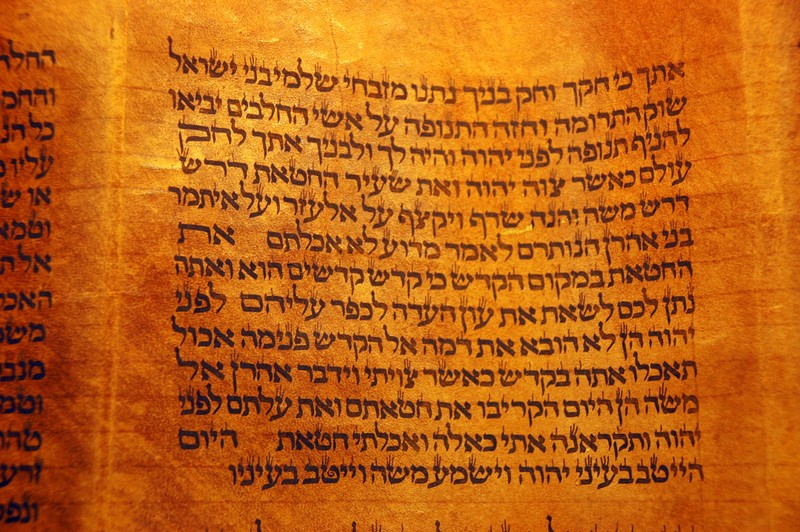 אתך כי חקך וחק בניך נתנו מזבחי שלמי בני ישראל
שוק התרומה וחזה התנופה על אשי החלבים יביאו
להניף תנופה לפני יהוה והיה לך ולבניך אתך לחק
עולם כאשר צוה יהוה ואת שעיר החטאת דרש
דרש משה והנה שרף ויקצף על אלעזר ועל איתמר
בני אהרן הנותרם לאמר מדוע לא אכלתם את
החטאת במקום הקדש כי קדש קדשים הוא ואתה
נתן לכם לשאת את עון העדה לכפר עליהם לפני
יהוה הן לא הובא את דמה אל הקדש פנימה אכול
תאכלו אתה בקדש כאשר צויתי וידבר אהרן אל
משה הן היום הקריבו את חטאתם ואת עלתם לפני
יהוה ותקראנה אתי כאלה ואכלתי חטאת היום
הייטב בעיני יהוה וישמע משה וייטב בעיניו
החלד
והחמ
כל הנ
עליו
או ש
וטמא
אלת
האכ
משמ
מנב
וטמ
טהו
זרע
ונפל